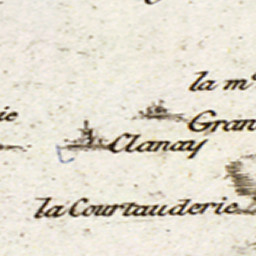 la m
Gran
ie
Clanay
la Courtauderie